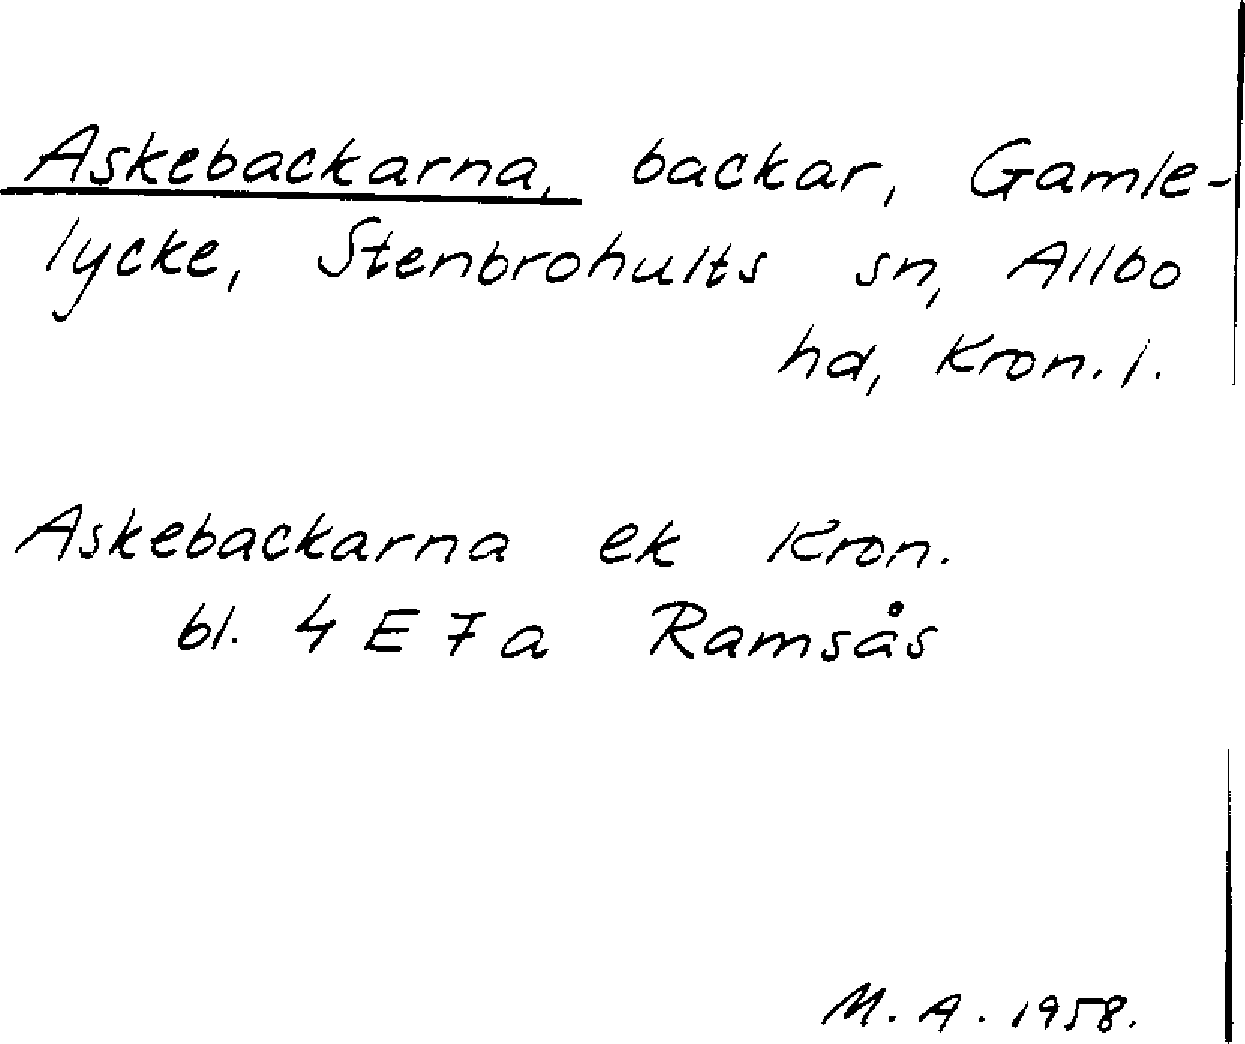 Askebackarna, backar, Gamle-
lycke, Stenbrohults sn, Allbo
hd, Kron. l.
Askebackarna ek Kron.
bl. 4 E 7 a Ramsås
M. A. 1958.